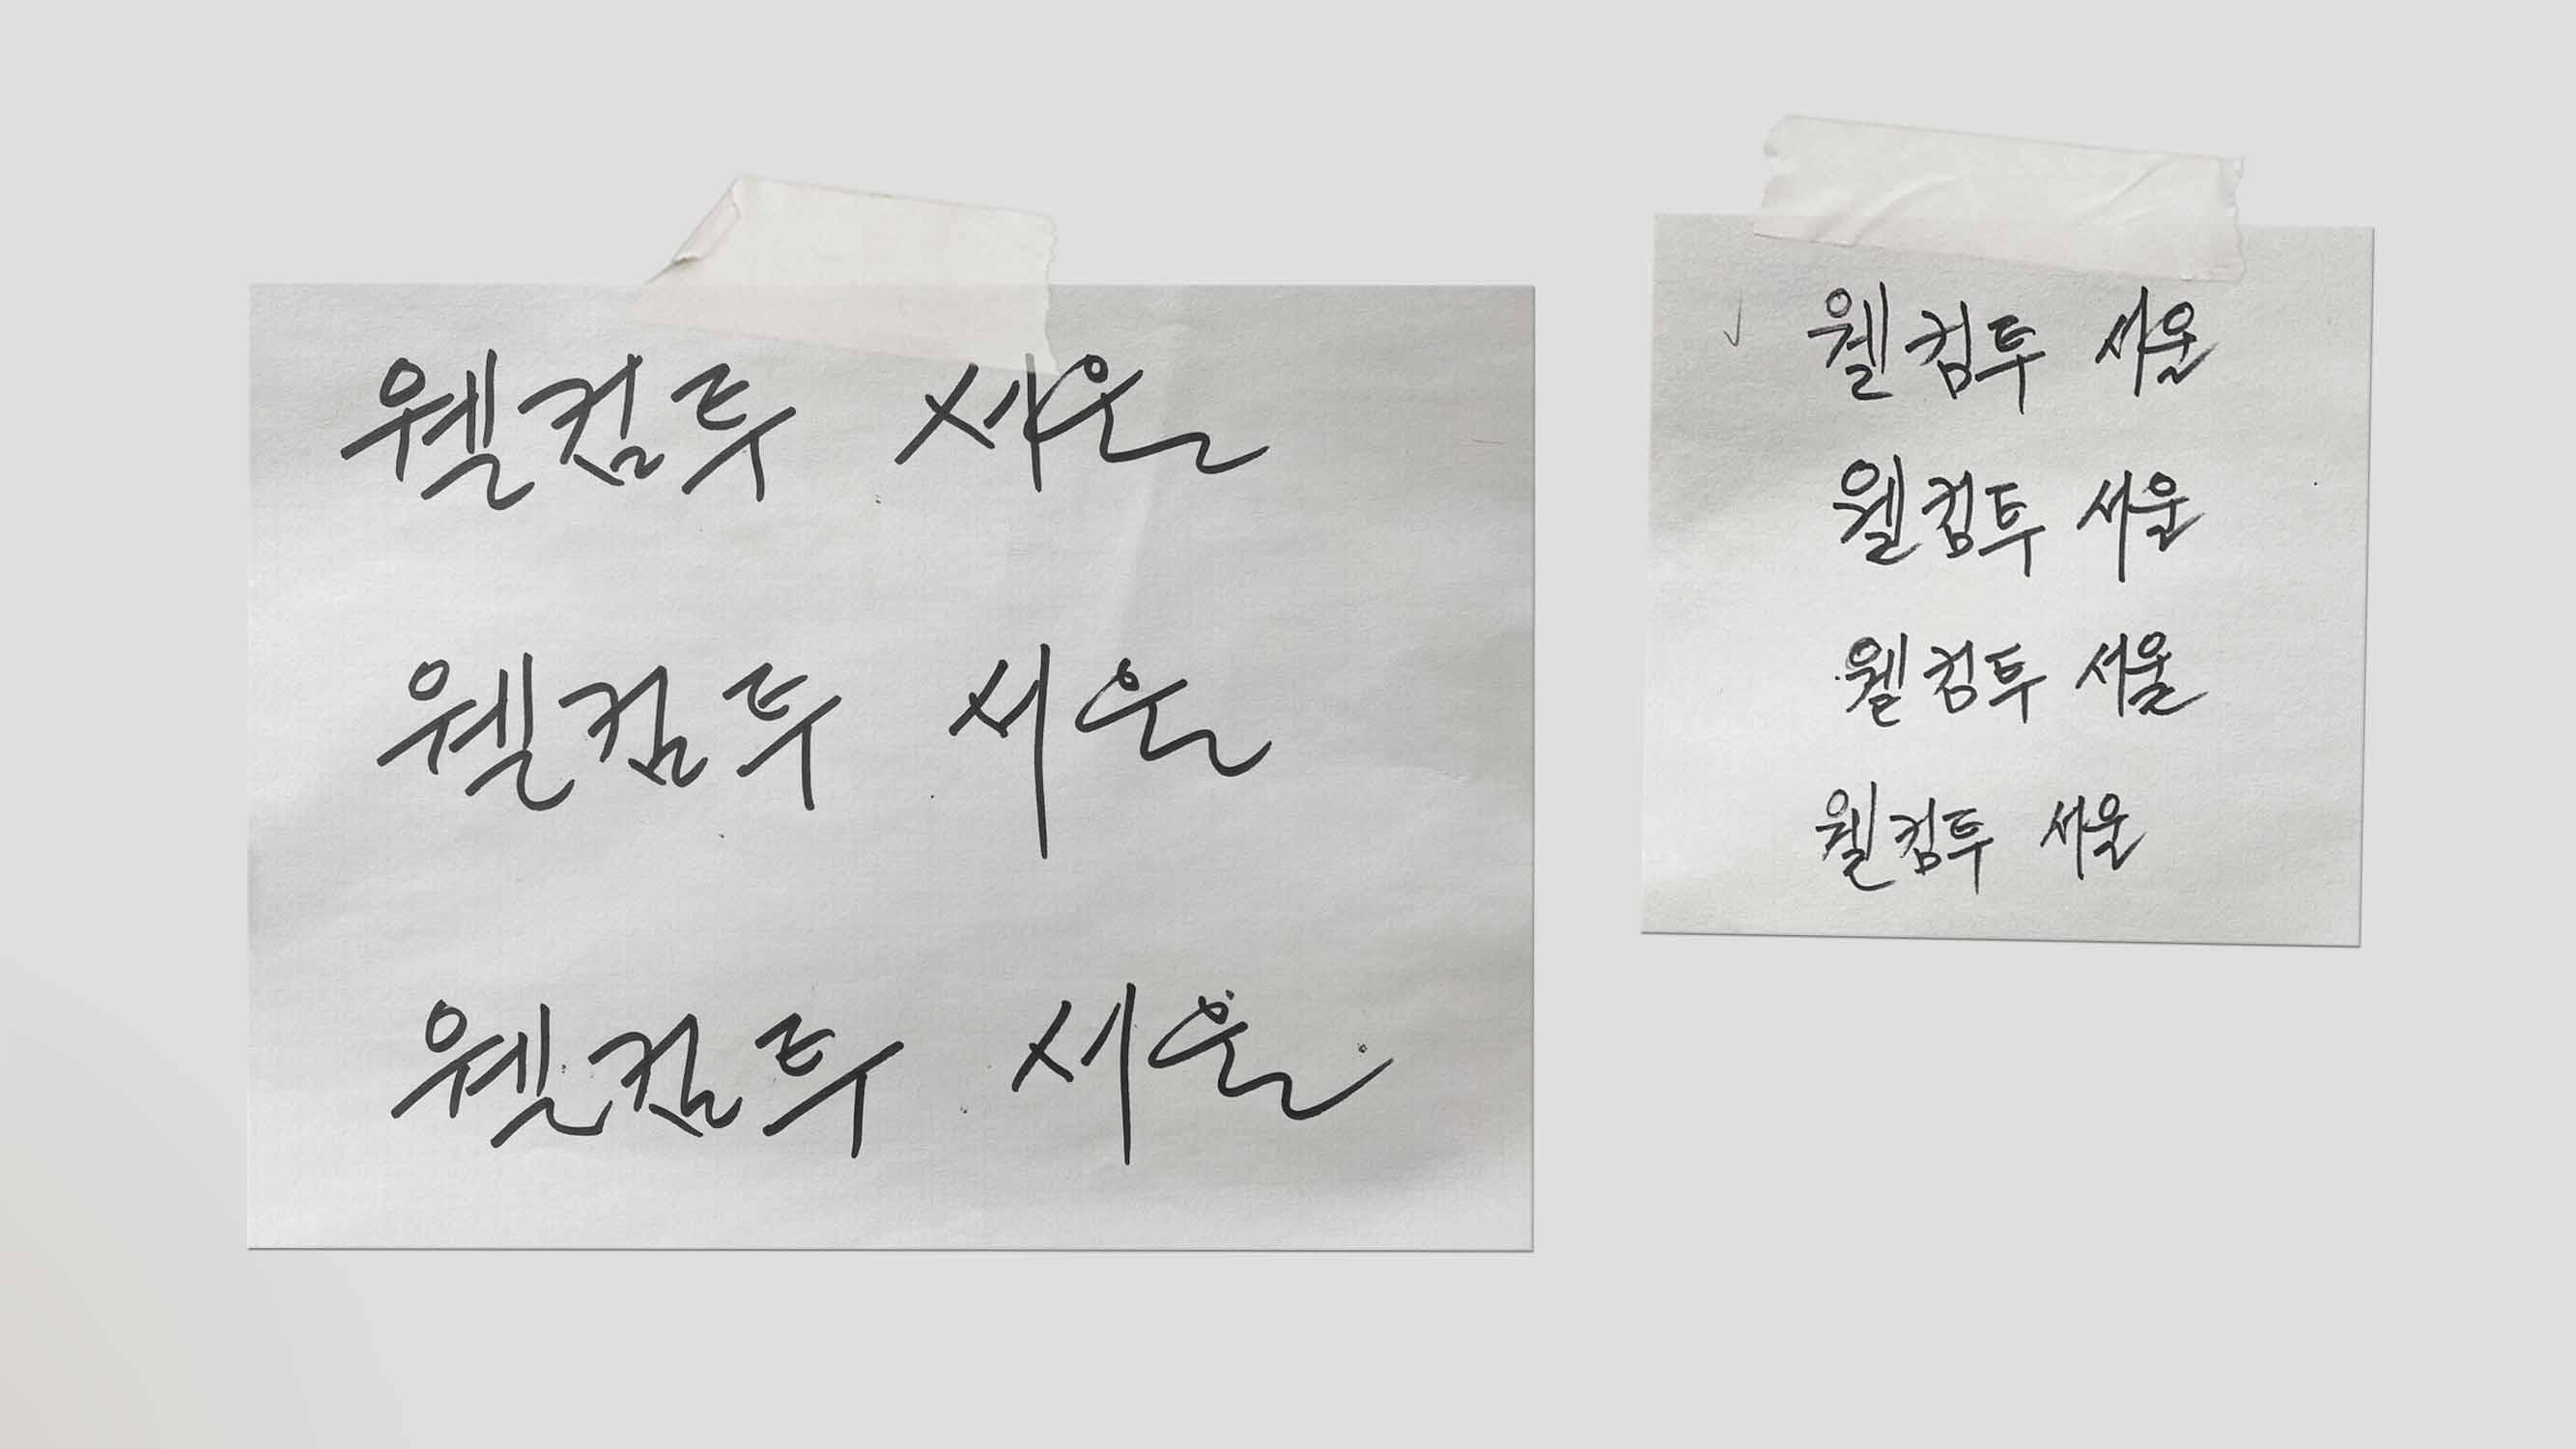 웰컴투 서울
웰컴투 서울
웰컴투 서울
웰컴투 서울
웰컴투 서울
웰컴투 서울
웰컴투 서울